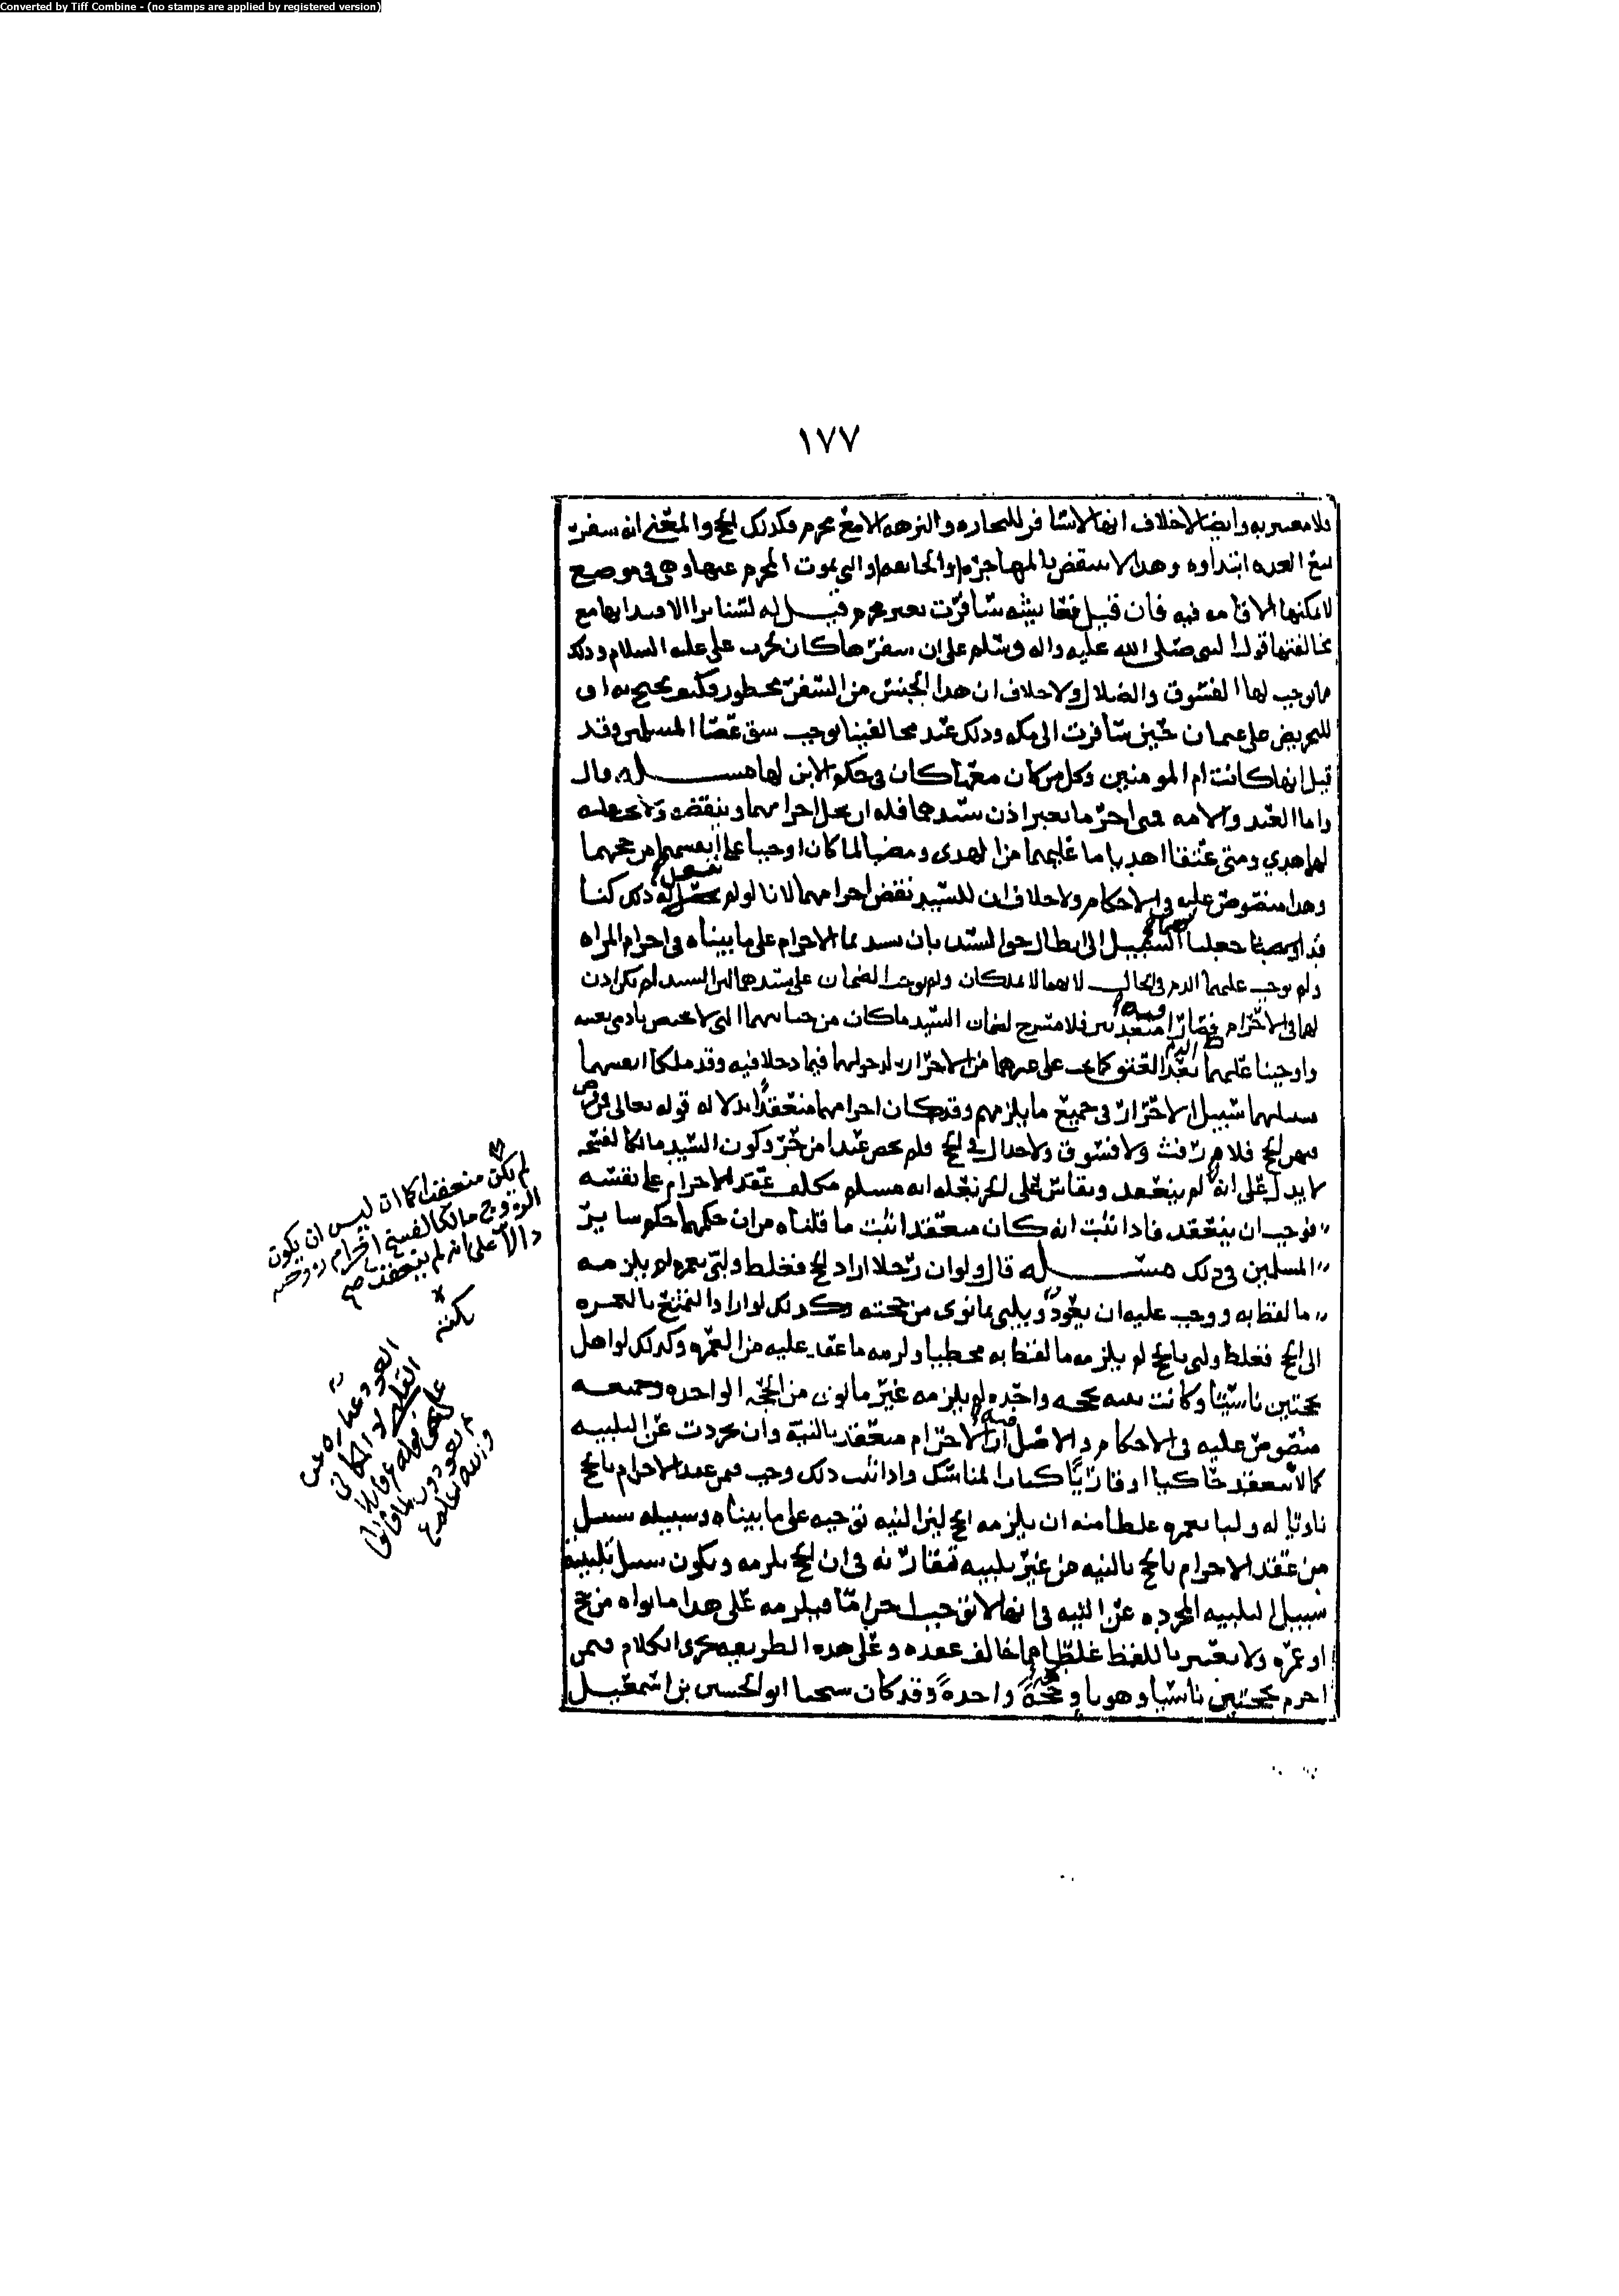 Converted by Tiff Combine - (no stamps are applied by registered version)
١٧٧
فلا معتبر به وايضا لاخلاف انها لا تسافر للتجاره والنزهه الا مع محرم فكذلك الحج والمعنى انه سفر
العده ابتداوه وهذا لا ينتقض بالمهاجره والتي يموت المحرم عنها وهي في موضع
لا يمكنها الاقامه فيه فان قيل فعايشه سافرت بغير محرم قيل له لسنا نرا الاقتدا بها مع
مخالفتها قول النبي صلى الله عليه واله وسلم على ان سفرها كان لحرب علي عليه السلام وذلك
مما يوجب لها الفسوق والضلال ولا خلاف ان هذا الجنس من السفر محظور فكيف يحتج به او
للتحريض على عثمان حين سافرت الى مكه وذلك عند مخالفينا يوجب شق عصا المسلمين وقد
قيل انها كانت ام المومنين وكل من كان معها كان في حكم الابن لها مسـله قال
واما العبد والامه متى احرما بغير اذن سيدهما فله ان يحل احرامهما وينقضه ولا يجعله
لهما هدي ومتى عتقا اهديا ما عليهما من الهدى ومضيا لما كانا اوجبا على انفسهما من حجهما
وهذا منصوص عليه في الاحكام ولا خلاف ان للسيد نقض احرامهما لانا لو لم نجعل له ذلك كنا
قد جعلنا السبيل الى ابطال حق السيد بان الاحرام على ما بيناه في احرام المراه
ولم نوجب عليهما الدم في الحال لانهما لا يملكان ولم نوجب الضمان على سيدهما لان السيد لم يكن اذن
لهما في الاحرام فصارا متعديين فيه فلا مسرح لضمان السيد ما كان من جنايتهما التي لا تختص بادمى بعينه
واوجبنا عليهما بعد العتق الدم كما يجب على غيرهما من الاحرار لدخولهما فيما دخلا فيه وقد ملكا انفسهما
سبيلهما سبيل الاحرار في جميع ما يلزمهم وقد كان احرامهما منعقدا بدلاله قوله تعالى فمن فرض
فيهن الحج فلا رفث ولا فسوق ولا جدال في الحج فلم يخص عبدا من حر وكون السيد مالكا لفسخه
لا يدل على انه لم ينعقد ويقاس على الحر بعله انه مسلم مكلف عقد الاحرام على نفسه
فوجب ان ينعقد فاذا ثبت انه كان منعقدا ثبت ما قلناه من ان حكمهما حكم ساير
المسلمين في ذلك مسـله قال ولو ان رجلا اراد الحج فغلط ولبى بعمره لم يلزمه
ما لفظ به ووجب عليه ان يعود ويلبي بما نوى من حجته وكذلك لو اراد التمتع بالعمره
الى الحج فغلط ولبى بالحج لم يلزمه ما لفظ به مخطيا ولزمه ما عقد عليه من العمره وكذلك لو اهل
بحجتين ناسيا وكانت نيته بحجه واحده لم يلزمه غير ما نوى من الحجه الواحده وجميعه
منصوص عليه في الاحكام والاصل فيه ان الاحرام منعقد بالنيه وان تجردت عن التلبيه
كما لا ينعقد حاكيا او قاريا لكتاب المناسك واذا ثبت ذلك وجب فيمن عقد الاحرام بالحج
ناويا له ولبا بعمره غلطا منه ان يلزمه الحج لان النيه توجبه على ما بيناه وسبيله سبيل
من عقد الاحرام بالحج بالنيه من غير تلبيه تقارنه في ان الحج يلزمه ويكون سبيل تلبيته
سبيل التلبيه المجرده عن النيه في انها لا توجب احراما فيلزمه على هذا ما نواه من حج
او عمره ولا يعتبر باللفظ غلطا مما خالف عقده وعلى هذه الطريقه يجرى الكلام فيمن
احرم بحجتين ناسيا وهو ناو حجة واحدة وقد كان شيخنا ابو الحسين بن اسمعيل
لم يكن منعقدا كما ان ليس ان يكون
الزوج مالكا لفسخ احرام زوجته
دالا على انه لم ينعقد
العود عباره عن